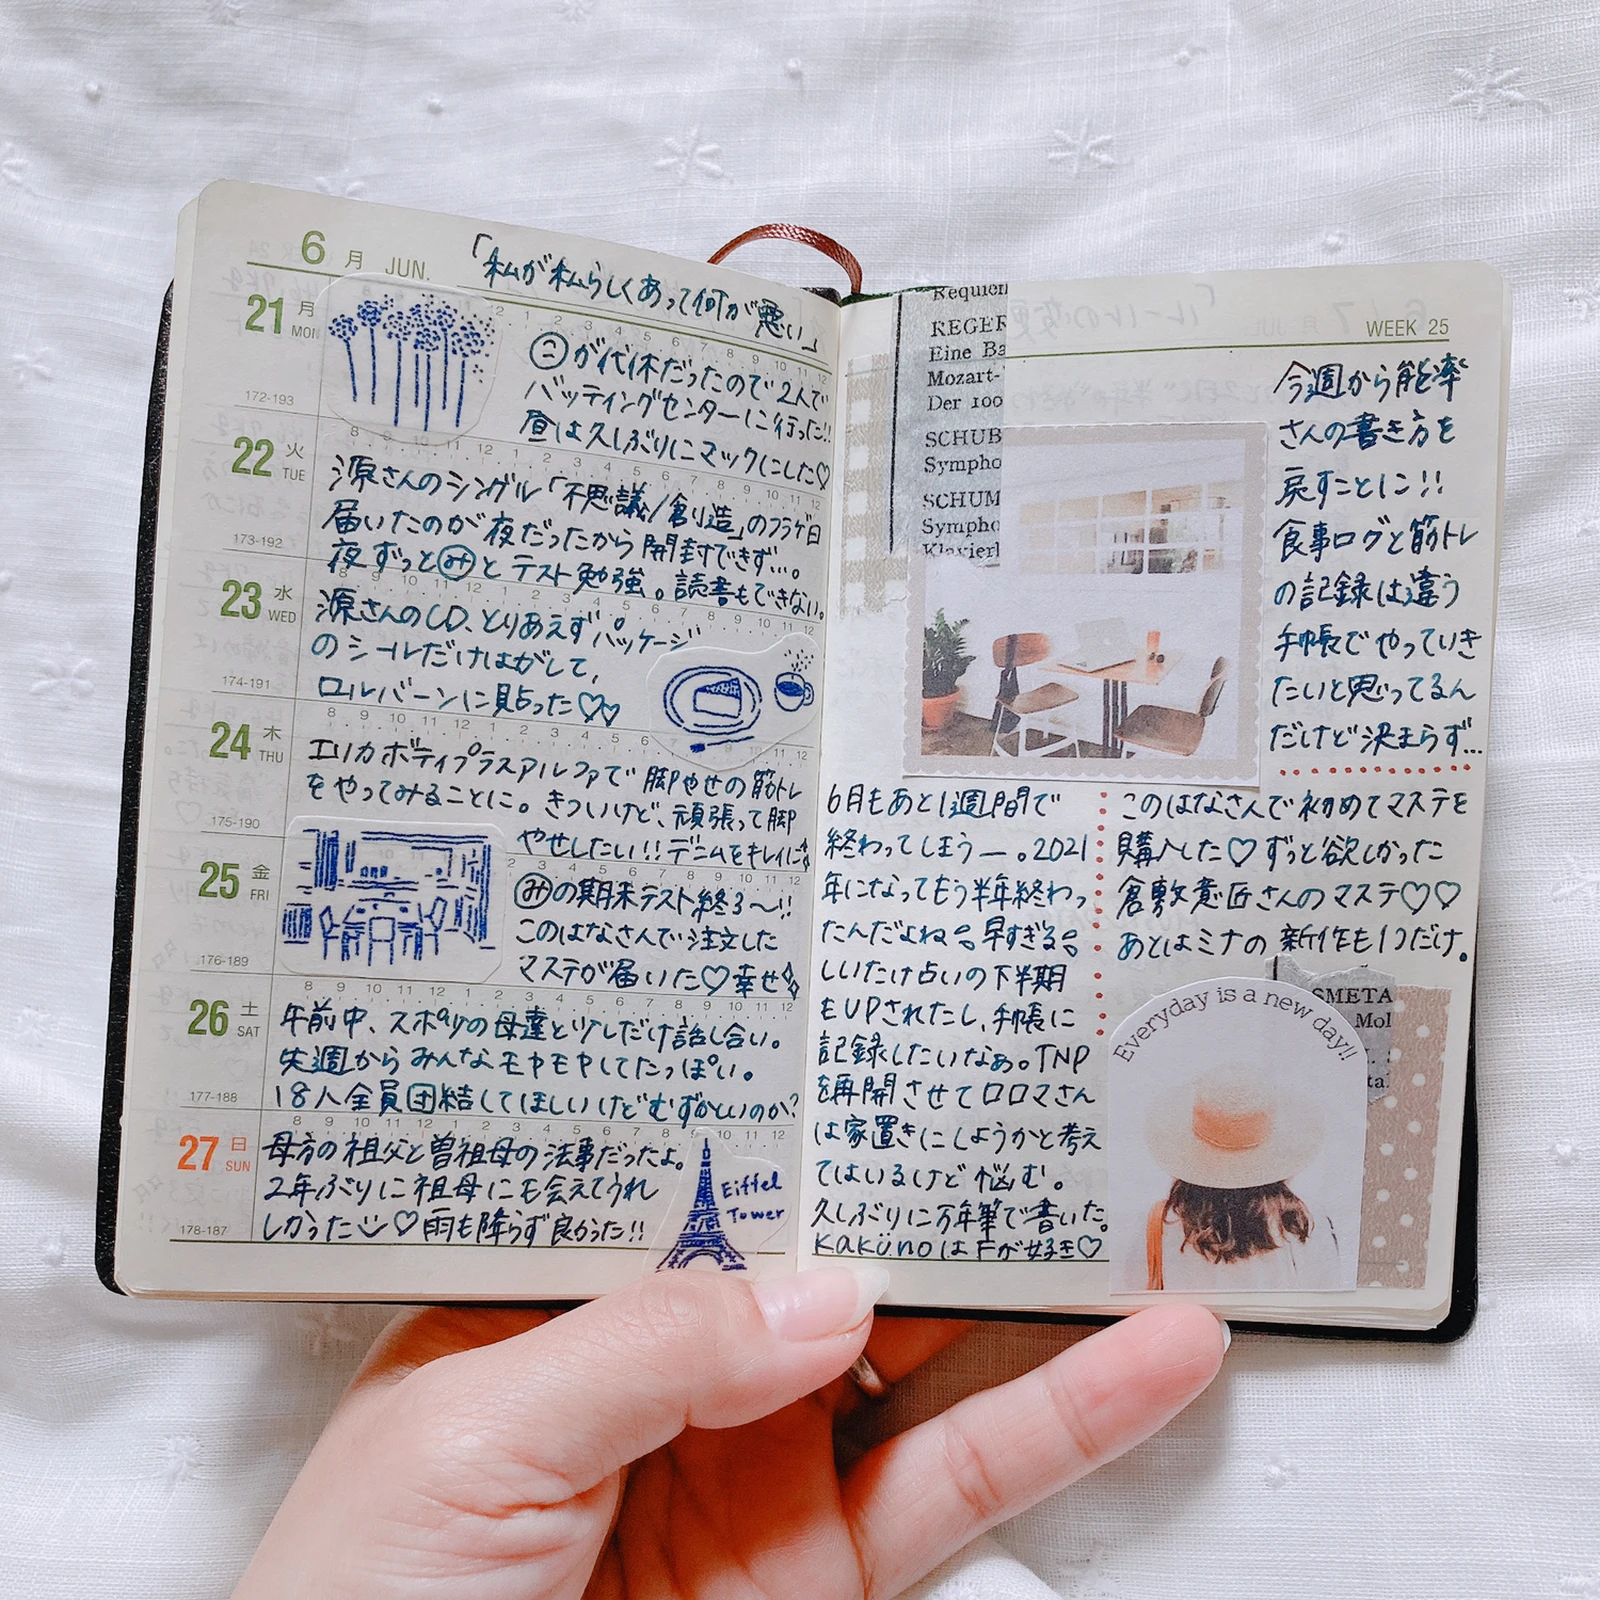 6 月 JUN.
「私が私らしくあって何が悪い」
21 月 MON
172-193
㋙が代休だったので2人で
バッティングセンターに行った!!
昼は久しぶりにマックにした♡
22 火 TUE
173-192
源さんのシングル「不思議/創造」のフラゲ日
届いたのが夜だったから開封できず…。
夜ずっと㋯とテスト勉強。読書もできない。
23 水 WED
174-191
源さんのCD、とりあえずパッケージ
のシールだけはがして、
ロルバーンに貼った♡♡
24 木 THU
175-190
エリカボディプラスアルファで脚やせの筋トレ
をやってみることに。きついけど、頑張って脚
やせしたい!!デニムをキレイに
25 金 FRI
176-189
みの期末テスト終了〜!!
このはなさんで注文した
マステが届いた♡幸せ
26 土 SAT
177-188
午前中、スポ少の母達と少しだけ話し合い。
先週からみんなモヤモヤしてたっぽい。
18人全員団結してほしいけどむずかしいのか?
27 日 SUN
178-187
母方の祖父と曽祖母の法事だったよ。
2年ぶりに祖母にも会えてうれ
しかった♡雨も降らず良かった!!
Eiffel
Tower
WEEK 25
Requien
REGER
Eine Ba
Mozart-
Der 100
SCHUB
Sympho
SCHUM
Sympho
Klavierl
今週から能率
さんの書き方を
戻すことに!!
食事ログと筋トレ
の記録は違う
手帳でやっていき
たいと思ってるん
だけど決まらず…
6月もあと1週間で
終わってしまうー。2021
年になってもう半年終わっ
たんだよね。早すぎる。
しいたけ占いの下半期
もUPされたし、手帳に
記録したいなぁ。TNP
を再開させてロロマさん
は家置きにしようかと考え
てはいるけど悩む。
久しぶりに万年筆で書いた。
KakünoはFが好き♡
このはなさんで初めてマステを
購入した♡ずっと欲しかった
倉敷意匠さんのマステ♡♡
あとはミナの新作も1つだけ。
SMETA
Mol
tal
Everyday is a new day!!